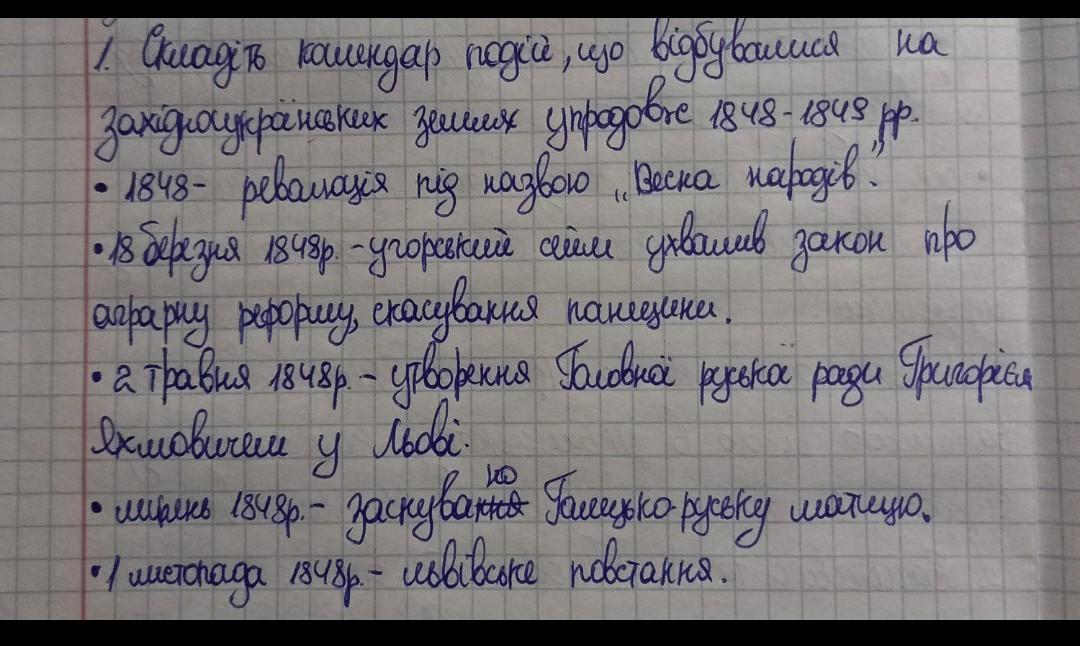 1. Складіть календар подій, що відбувалися на
західноукраїнських землях упродовж 1848-1849 рр.
• 1848- революція під назвою „Весна народів".
• 18 березня 1848р. - угорський сейм ухвалив закон про
аграрну реформу, скасування панщини.
• 2 травня 1848р. - утворення Головної руської ради Григорієм
Яхмовичем у Львові.
• липень 1848р. - заснувано Галицько-руську матицю.
• 1 листопада 1848р. - львівське повстання.